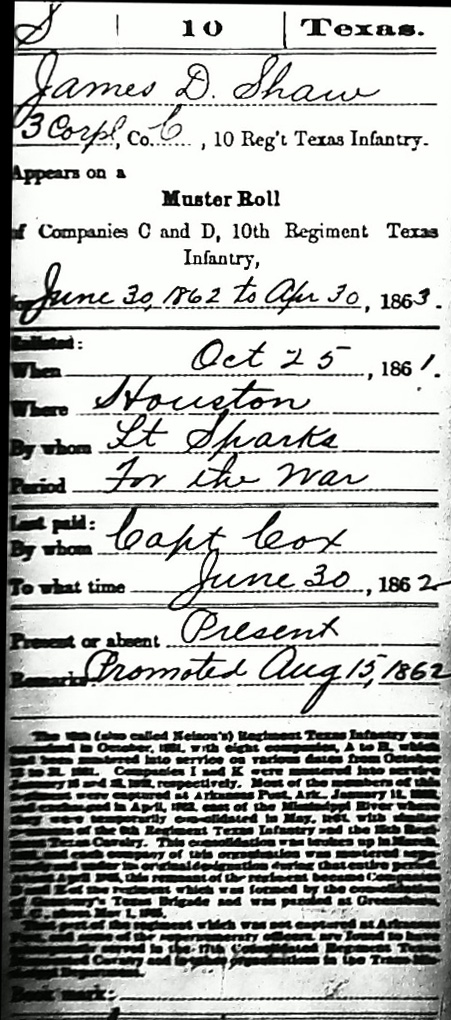 S | 10 | Texas.
James D. Shaw
3 Corpl, Co. C, 10 Reg't Texas Infantry.
Appears on a
Muster Roll
of Companies C and D, 10th Regiment Texas
Infantry,
for June 30, 1862 to Apr 30, 1863.
Enlisted:
When Oct 25, 1861.
Where Houston
By whom Lt Sparks
Period For the War
Last paid:
By whom Capt Cox
To what time June 30, 1862
Present or absent Present
Remarks: Promoted Aug 15, 1862
The 10th (also called Nelson's) Regiment Texas Infantry was
organized in October, 1861, with eight companies, A to H, which
had been mustered into service on various dates from October
to 31, 1861. Companies I and K were mustered into service
January and 1862, respectively. Most of the members of this
regiment were captured at Arkansas Post, Ark., January 11, 1863,
and exchanged in April, 1863, east of the Mississippi River where
they were temporarily consolidated in May, with similar
remnants of the 6th Regiment Texas Infantry and the 15th Regiment
Texas Cavalry. This consolidation was broken up in March,
and each company of this organization was mustered
under its original designation during that entire period.
April 1865, this remnant of the regiment became Companies
and K of the regiment which was formed by the consolidation
of Granbury's Texas Brigade and was paroled at Greensboro,
N. C., about May 1, 1865.
That part of the regiment which was not captured at Arkansas
Post, and some of the are found to have
served in the 17th Consolidated Regiment Texas
Dismounted Cavalry and in other organizations in the Trans-Mississippi
Department.
Book mark: